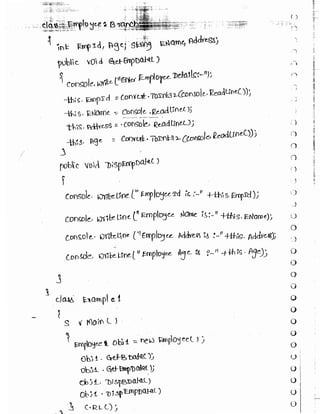 class Employee : Branch
{
int EmpId, Age; string EName, Address;
public void GetEmpData( )
{
Console.Write("Enter Employee Details:-");
this.EmpId = Convert.ToInt32(Console.ReadLine());
this.EName = Console.ReadLine();
this.Address = Console.ReadLine();
this.Age = Convert.ToInt32(Console.ReadLine());
}
public void DispEmpData( )
{
Console.WriteLine("EmployeeId is :-" + this.EmpId);
Console.WriteLine("Employee Name is:-" + this.EName);
Console.WriteLine("Employee Address is :-" + this.Address);
Console.WriteLine("Employee Age is :-" + this.Age);
}
}
class Example1
{
S V Main( )
{
Employee obj1 = new Employee( );
Obj1.GetBData( );
obj1.GetEmpData( );
obj1.DispBData( )
obj1.DispEmpData( )
} C.RL( );